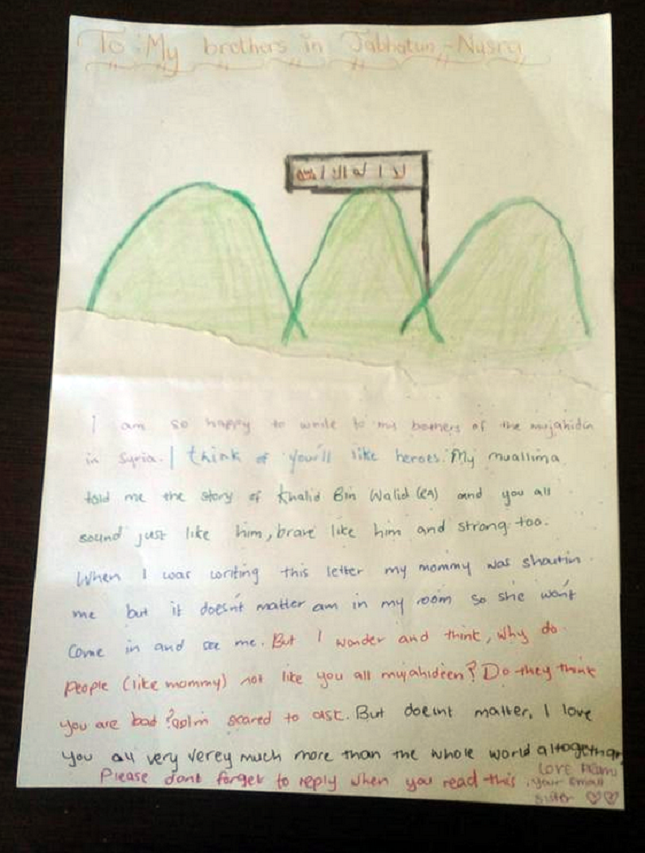 To: My brothers in Jabhatun-Nusra
لا ا له الا الله
I am so happy to write to my bothers of the mujahidin
in Syria. I think of you'll like heroes. My muallima
told me the story of Khalid Bin Walid (RA) and you all
sound just like him, brave like him and strong too.
When I was writing this letter my mommy was shoutin
me but it doesn't matter am in my room so she won't
Come in and see me. But I wonder and think, why do
People (like mommy) not like you all mujahideen? Do they think
you are bad? scared to ask. But doesnt matter, I love
you all very verey much more than the whole world altogether
Please dont forget to reply when you read this.
Love
your small
sister ♡♡